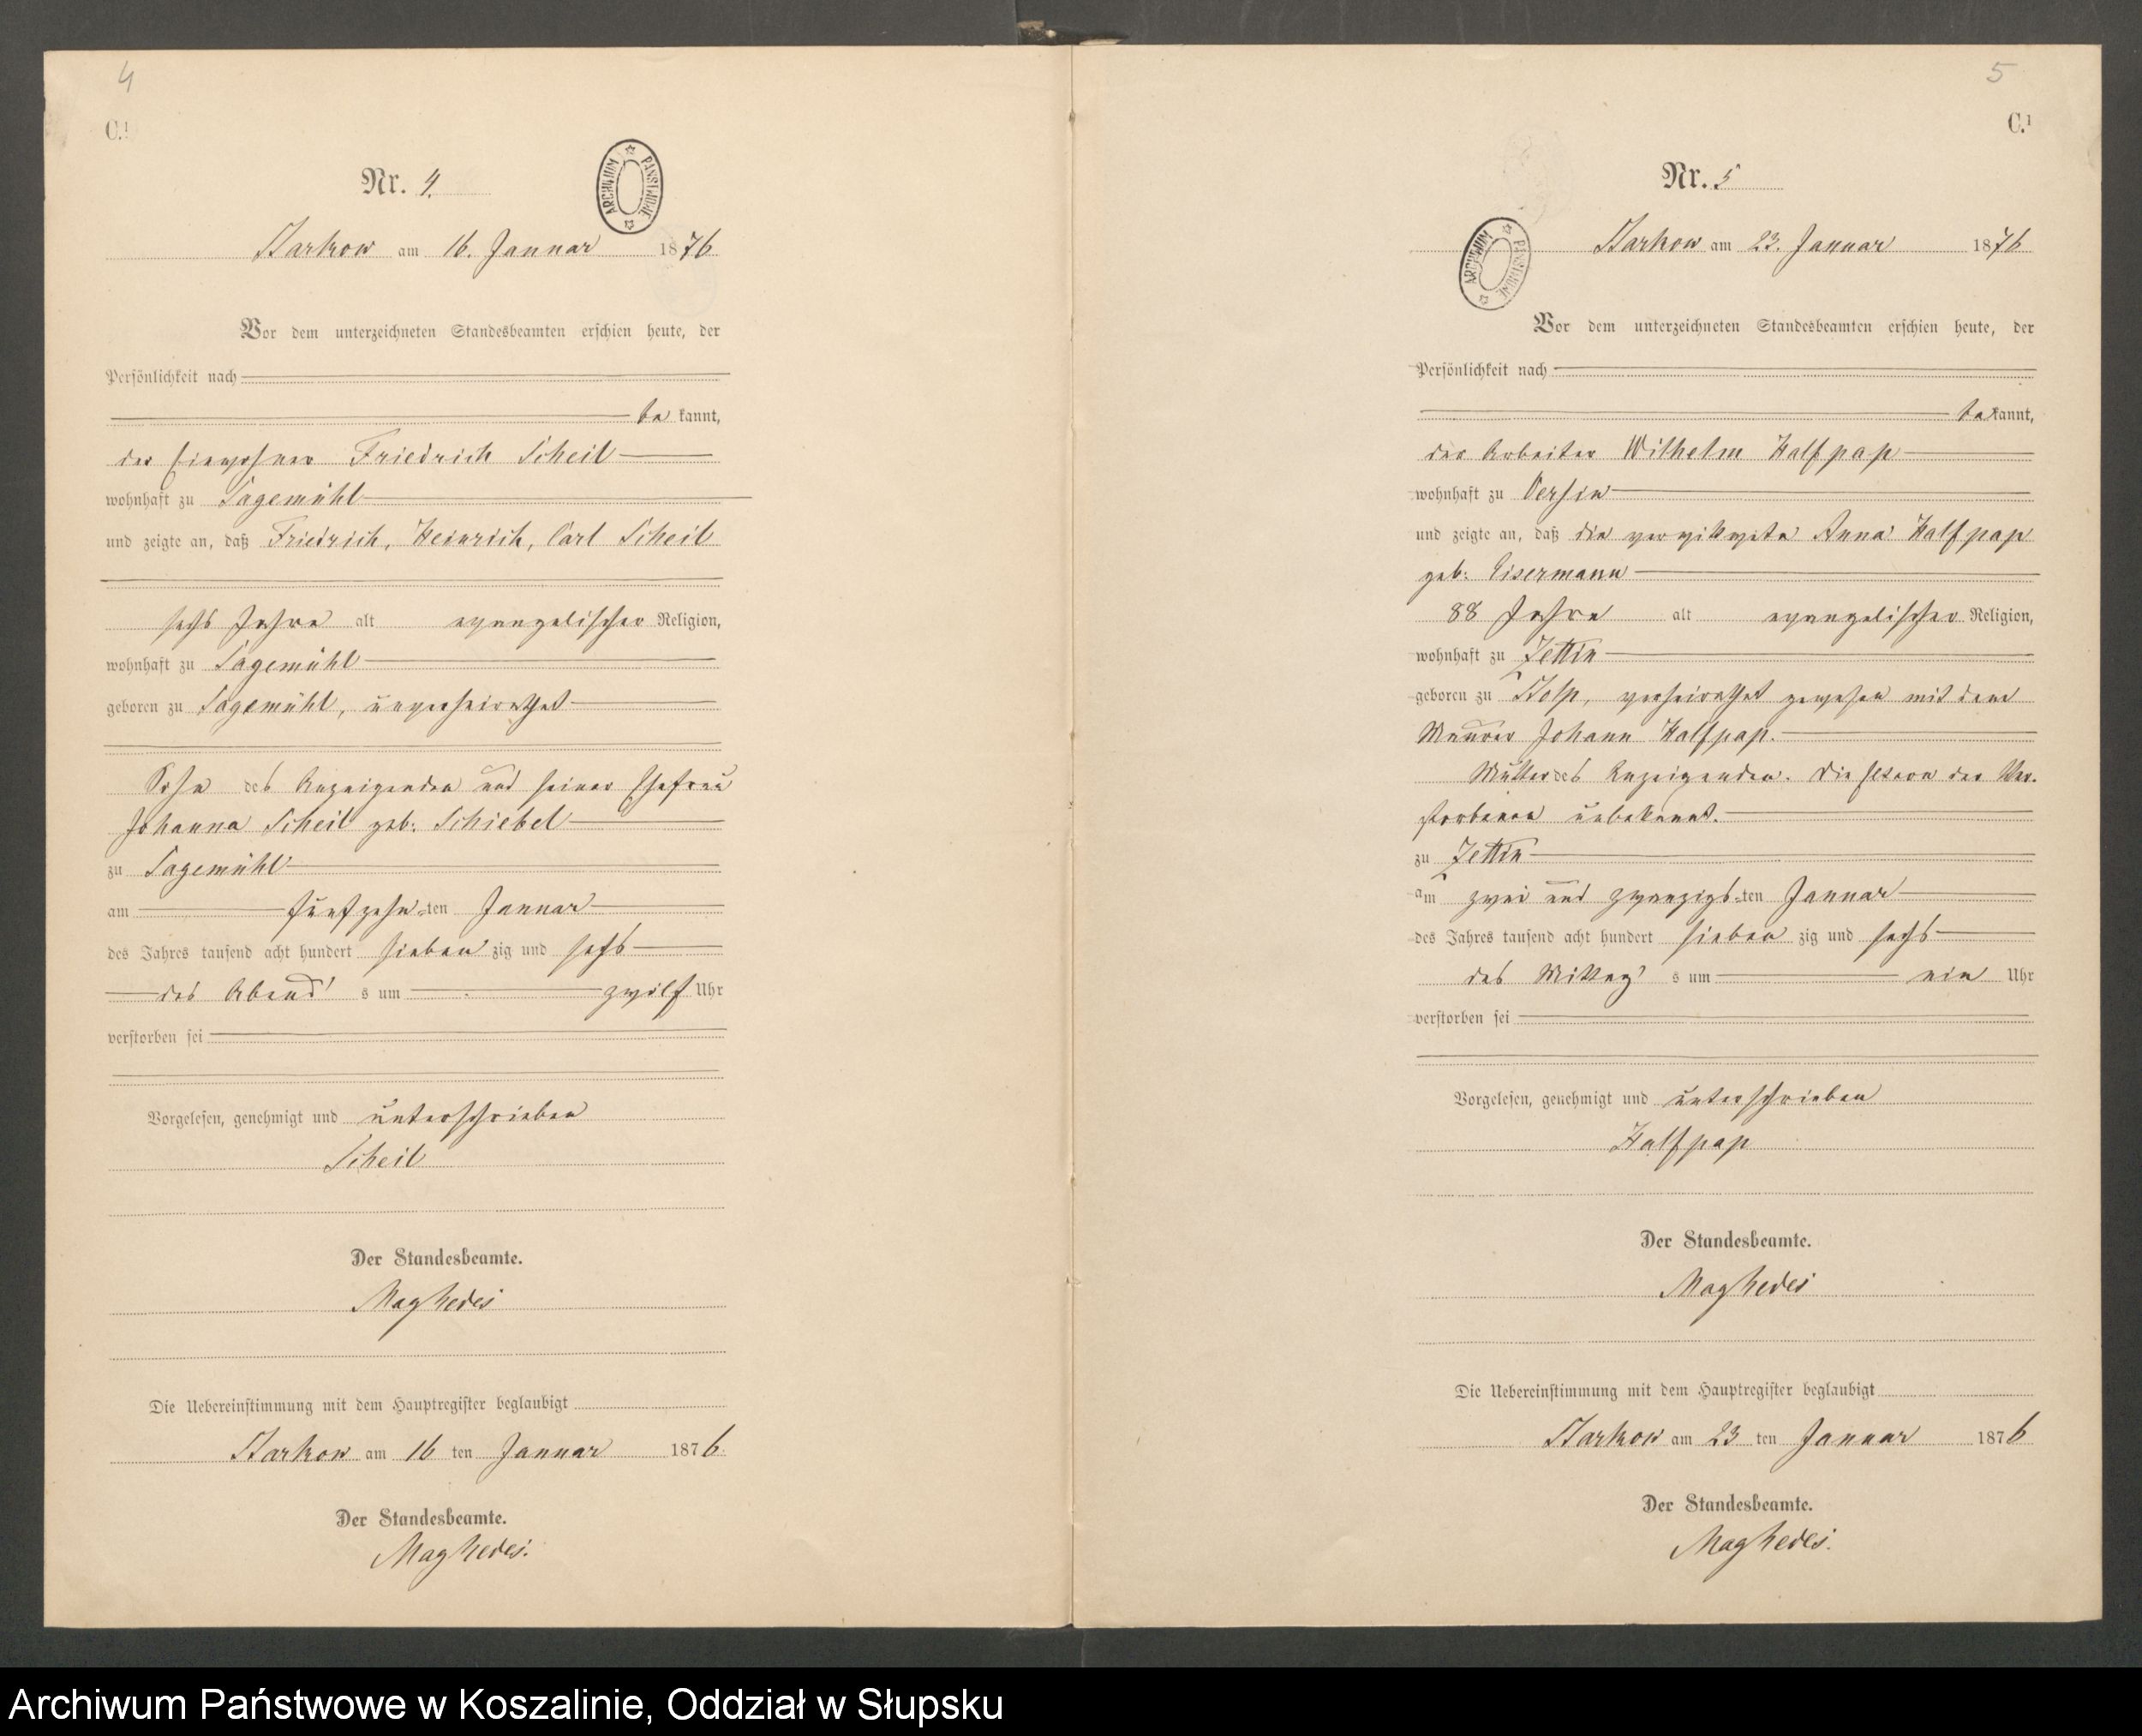 4
C.1
Nr. 4.
ARCHIWUM PAŃSTWOWE
Starkow am 16. Januar 1876
Vor dem unterzeichneten Standesbeamten erschien heute, der
Persönlichkeit nach
be kannt,
der Einwohner Friedrich Scheil
wohnhaft zu Sagemühl
und zeigte an, daß Friedrich, Heinrich, Carl Scheil
sechs Jahre alt evangelischer Religion,
wohnhaft zu Sagemühl
geboren zu Sagemühl, unverheirathet
Sohn des Anzeigenden und seiner Ehefrau
Johanna Scheil geb. Schiebel
zu Sagemühl
am fünfzehn-ten Januar
des Jahres tausend acht hundert sieben zig und sechs
des Abend s um zwölf Uhr
verstorben sei
Vorgelesen, genehmigt und unterschrieben
Scheil
Der Standesbeamte.
Die Uebereinstimmung mit dem Hauptregister beglaubigt
Starkow am 16 ten Januar 1876.
Der Standesbeamte.
5
C.1
Nr. 5
ARCHIWUM PAŃSTWOWE
Starkow am 23. Januar 1876
Vor dem unterzeichneten Standesbeamten erschien heute, der
Persönlichkeit nach
bekannt,
der Arbeiter Wilhelm Halfpap
wohnhaft zu Versin
und zeigte an, daß die verwittwete Anna Halfpap
geb. Eisermann
88 Jahre alt evangelischer Religion,
wohnhaft zu Zettin
geboren zu Stolp, verheirathet gewesen mit dem
Maurer Johann Halfpap.
Mutter des Anzeigenden. Die Eltern der Ver-
storbenen unbekannt.
zu Zettin
am zwei und zwanzigs-ten Januar
des Jahres tausend acht hundert sieben zig und sechs
des Mittag s um ein Uhr
verstorben sei
Vorgelesen, genehmigt und unterschrieben
Halfpap
Der Standesbeamte.
Die Uebereinstimmung mit dem Hauptregister beglaubigt
Starkow am 23 ten Januar 1876
Der Standesbeamte.
Archiwum Państwowe w Koszalinie, Oddział w Słupsku